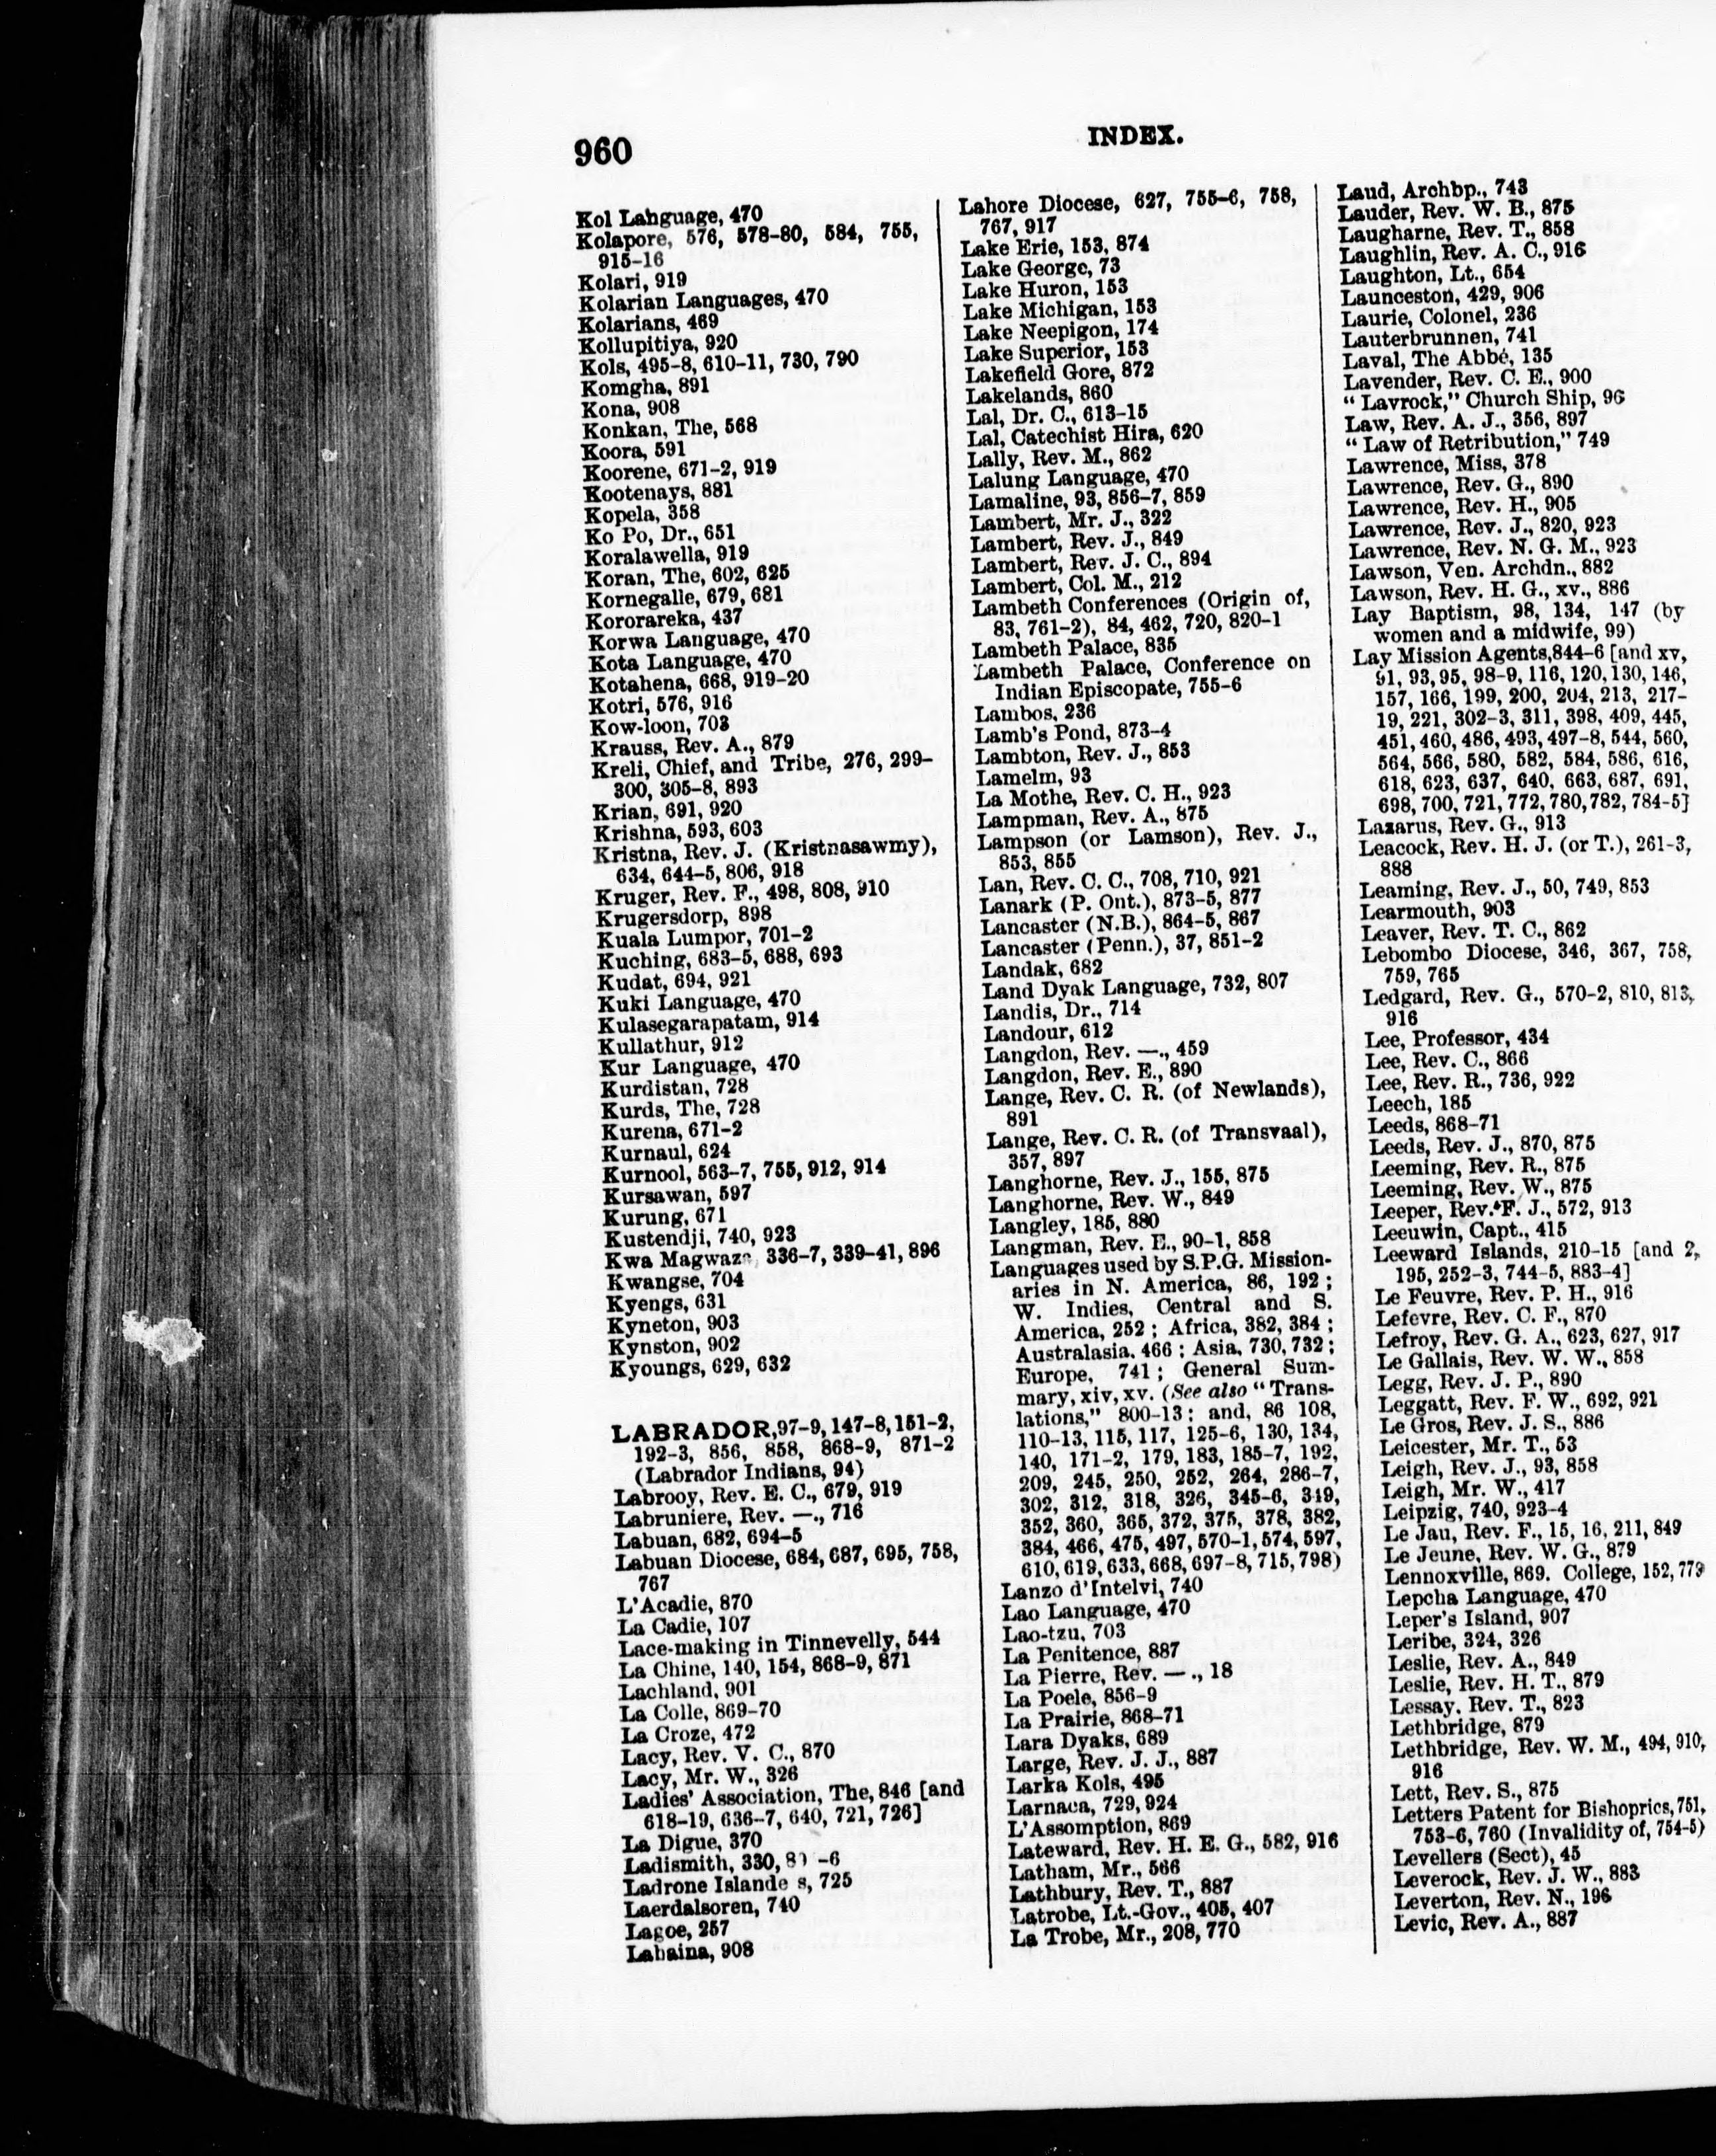 960
INDEX.
Kol Language, 470
Kolapore, 576, 578-80, 584, 755,
915-16
Kolari, 919
Kolarian Languages, 470
Kolarians, 469
Kollupitiya, 920
Kols, 495-8, 610-11, 730, 790
Komgha, 891
Kona, 908
Konkan, The, 568
Koora, 591
Koorene, 671-2, 919
Kootenays, 881
Kopela, 358
Ko Po, Dr., 651
Koralawella, 919
Koran, The, 602, 625
Kornegalle, 679, 681
Kororareka, 437
Korwa Language, 470
Kota Language, 470
Kotahena, 668, 919-20
Kotri, 576, 916
Kow-loon, 703
Krauss, Rev. A., 879
Kreli, Chief, and Tribe, 276, 299-
300, 305-8, 893
Krian, 691, 920
Krishna, 593, 603
Kristna, Rev. J. (Kristnasawmy),
634, 644-5, 806, 918
Kruger, Rev. F., 498, 808, 910
Krugersdorp, 898
Kuala Lumpor, 701-2
Kuching, 683-5, 688, 693
Kudat, 694, 921
Kuki Language, 470
Kulasegarapatam, 914
Kullathur, 912
Kur Language, 470
Kurdistan, 728
Kurds, The, 728
Kurena, 671-2
Kurnaul, 624
Kurnool, 563-7, 755, 912, 914
Kursawan, 597
Kurung, 671
Kustendji, 740, 923
Kwa Magwaza, 336-7, 339-41, 896
Kwangse, 704
Kyengs, 631
Kyneton, 903
Kynston, 902
Kyoungs, 629, 632
LABRADOR, 97-9, 147-8, 151-2,
192-3, 856, 858, 868-9, 871-2
(Labrador Indians, 94)
Labrooy, Rev. E. C., 679, 919
Labruniere, Rev. —., 716
Labuan, 682, 694-5
Labuan Diocese, 684, 687, 695, 758,
767
L'Acadie, 870
La Cadie, 107
Lace-making in Tinnevelly, 544
La Chine, 140, 154, 868-9, 871
Lachland, 901
La Colle, 869-70
La Croze, 472
Lacy, Rev. V. C., 870
Lacy, Mr. W., 326
Ladies' Association, The, 846 [and
618-19, 636-7, 640, 721, 726]
La Digue, 370
Ladismith, 330, -6
Ladrone Islande s, 725
Laerdalsoren, 740
Lagoe, 257
Lahaina, 908
Lahore Diocese, 627, 755-6, 758,
767, 917
Lake Erie, 153, 874
Lake George, 73
Lake Huron, 153
Lake Michigan, 153
Lake Neepigon, 174
Lake Superior, 153
Lakefield Gore, 872
Lakelands, 860
Lal, Dr. C., 613-15
Lal, Catechist Hira, 620
Lally, Rev. M., 862
Lalung Language, 470
Lamaline, 93, 856-7, 859
Lambert, Mr. J., 322
Lambert, Rev. J., 849
Lambert, Rev. J. C., 894
Lambert, Col. M., 212
Lambeth Conferences (Origin of,
83, 761-2), 84, 462, 720, 820-1
Lambeth Palace, 835
Lambeth Palace, Conference on
Indian Episcopate, 755-6
Lambos, 236
Lamb's Pond, 873-4
Lambton, Rev. J., 853
Lamelm, 93
La Mothe, Rev. C. H., 923
Lampman, Rev. A., 875
Lampson (or Lamson), Rev. J.,
853, 855
Lan, Rev. C. C., 708, 710, 921
Lanark (P. Ont.), 873-5, 877
Lancaster (N.B.), 864-5, 867
Lancaster (Penn.), 37, 851-2
Landak, 682
Land Dyak Language, 732, 807
Landis, Dr., 714
Landour, 612
Langdon, Rev. —., 459
Langdon, Rev. E., 890
Lange, Rev. C. R. (of Newlands),
891
Lange, Rev. C. R. (of Transvaal),
357, 897
Langhorne, Rev. J., 155, 875
Langhorne, Rev. W., 849
Langley, 185, 880
Langman, Rev. E., 90-1, 858
Languages used by S.P.G. Mission-
aries in N. America, 86, 192;
W. Indies, Central and S.
America, 252; Africa, 382, 384;
Australasia, 466; Asia, 730, 732;
Europe, 741; General Sum-
mary, xiv, xv. (See also "Trans-
lations," 800-13; and, 86 108,
110-13, 115, 117, 125-6, 130, 134,
140, 171-2, 179, 183, 185-7, 192,
209, 245, 250, 252, 264, 286-7,
302, 312, 318, 326, 345-6, 349,
352, 360, 365, 372, 375, 378, 382,
384, 466, 475, 497, 570-1, 574, 597,
610, 619, 633, 668, 697-8, 715, 798)
Lanzo d'Intelvi, 740
Lao Language, 470
Lao-tzu, 703
La Penitence, 887
La Pierre, Rev. —., 18
La Poele, 856-9
La Prairie, 868-71
Lara Dyaks, 689
Large, Rev. J. J., 887
Larka Kols, 495
Larnaca, 729, 924
L'Assomption, 869
Lateward, Rev. H. E. G., 582, 916
Latham, Mr., 566
Lathbury, Rev. T., 887
Latrobe, Lt.-Gov., 405, 407
La Trobe, Mr., 208, 770
Laud, Archbp., 743
Lauder, Rev. W. B., 875
Laugharne, Rev. T., 858
Laughlin, Rev. A. C., 916
Laughton, Lt., 654
Launceston, 429, 906
Laurie, Colonel, 236
Lauterbrunnen, 741
Laval, The Abbé, 135
Lavender, Rev. C. E., 900
"Lavrock," Church Ship, 96
Law, Rev. A. J., 356, 897
"Law of Retribution," 749
Lawrence, Miss, 378
Lawrence, Rev. G., 890
Lawrence, Rev. H., 905
Lawrence, Rev. J., 820, 923
Lawrence, Rev. N. G. M., 923
Lawson, Ven. Archdn., 882
Lawson, Rev. H. G., xv., 886
Lay Baptism, 98, 134, 147 (by
women and a midwife, 99)
Lay Mission Agents, 844-6 [and xv,
91, 93, 95, 98-9, 116, 120, 130, 146,
157, 166, 199, 200, 204, 213, 217-
19, 221, 302-3, 311, 398, 409, 445,
451, 460, 486, 493, 497-8, 544, 560,
564, 566, 580, 582, 584, 586, 616,
618, 623, 637, 640, 663, 687, 691,
698, 700, 721, 772, 780, 782, 784-5]
Lazarus, Rev. G., 913
Leacock, Rev. H. J. (or T.), 261-3,
888
Leaming, Rev. J., 50, 749, 853
Learmouth, 903
Leaver, Rev. T. C., 862
Lebombo Diocese, 346, 367, 758,
759, 765
Ledgard, Rev. G., 570-2, 810, 813,
916
Lee, Professor, 434
Lee, Rev. C., 866
Lee, Rev. R., 736, 922
Leech, 185
Leeds, 868-71
Leeds, Rev. J., 870, 875
Leeming, Rev. R., 875
Leeming, Rev. W., 875
Leeper, Rev. F. J., 572, 913
Leeuwin, Capt., 415
Leeward Islands, 210-15 [and 2,
195, 252-3, 744-5, 883-4]
Le Feuvre, Rev. P. H., 916
Lefevre, Rev. C. F., 870
Lefroy, Rev. G. A., 623, 627, 917
Le Gallais, Rev. W. W., 858
Legg, Rev. J. P., 890
Leggatt, Rev. F. W., 692, 921
Le Gros, Rev. J. S., 886
Leicester, Mr. T., 53
Leigh, Rev. J., 93, 858
Leigh, Mr. W., 417
Leipzig, 740, 923-4
Le Jau, Rev. F., 15, 16, 211, 849
Le Jeune, Rev. W. G., 879
Lennoxville, 869. College, 152, 779
Lepcha Language, 470
Leper's Island, 907
Leribe, 324, 326
Leslie, Rev. A., 849
Leslie, Rev. H. T., 879
Lessay, Rev. T., 823
Lethbridge, 879
Lethbridge, Rev. W. M., 494, 910,
916
Lett, Rev. S., 875
Letters Patent for Bishoprics, 751,
753-6, 760 (Invalidity of, 754-5)
Levellers (Sect), 45
Leverock, Rev. J. W., 883
Leverton, Rev. N., 196
Levic, Rev. A., 887